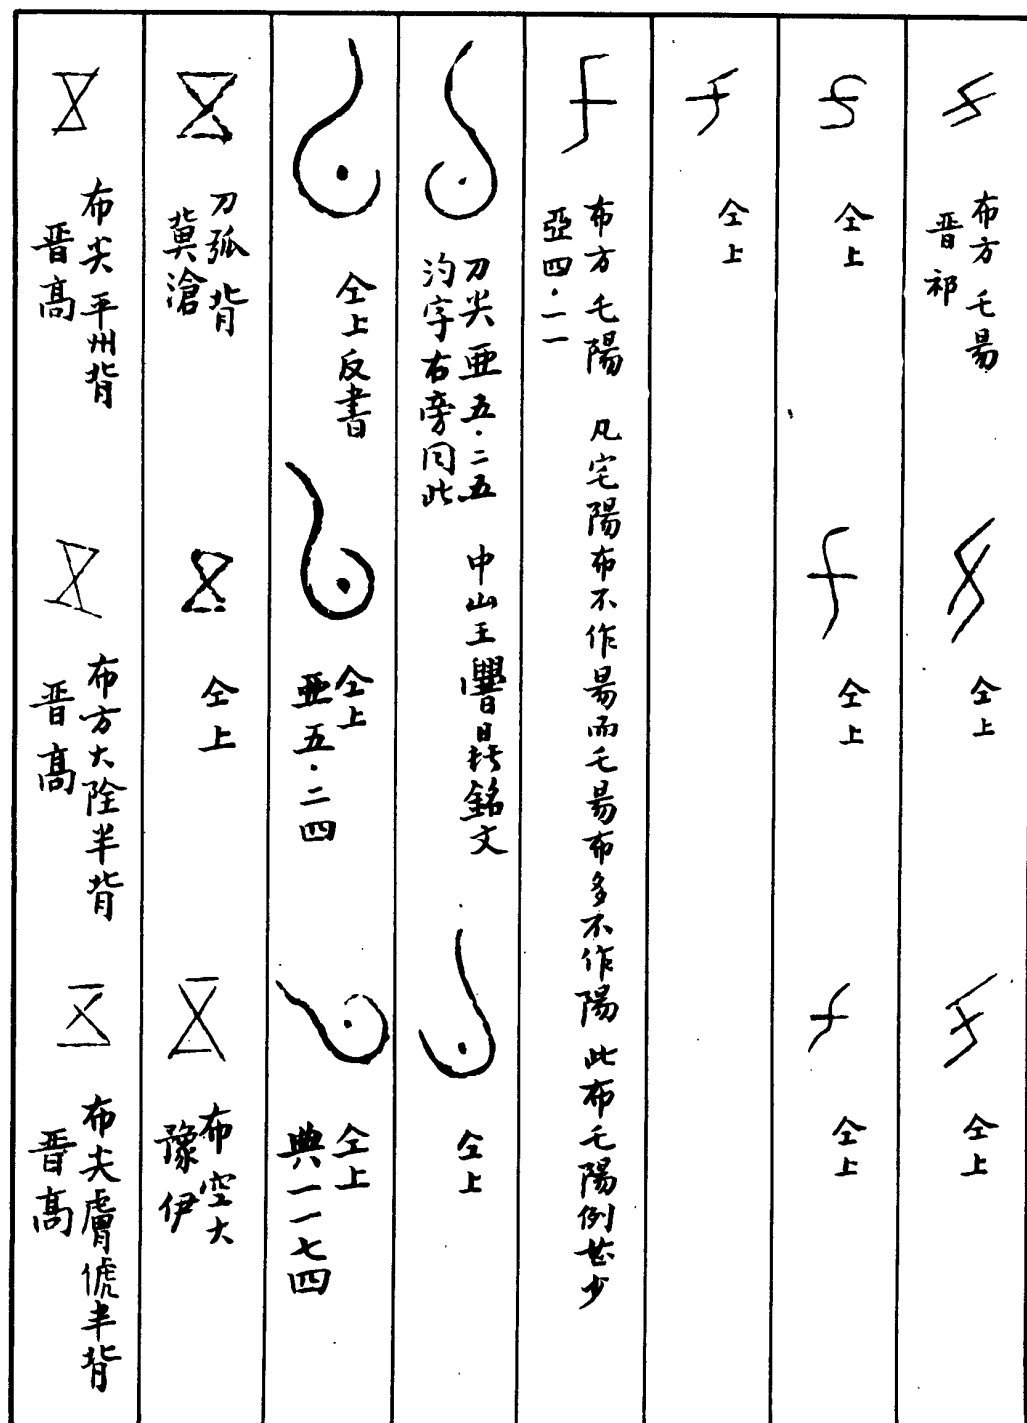 布方 乇昜
晋 祁
仝上
仝上
仝上
仝上
仝上
仝上
布方 乇陽
亞四·一一
凡宅陽布不作昜而乇昜布多不作陽 此布乇陽例甚少
刀尖 亞五·二五
汋字右旁同此
中山王 銘文
仝上
仝上反書
仝上
亞五·二四
仝上
典一一七四
刀弧背
冀滄
仝上
布空大
豫伊
布尖 平州背
晋高
布方大陰半背
晋高
布尖膚俿半背
晋高